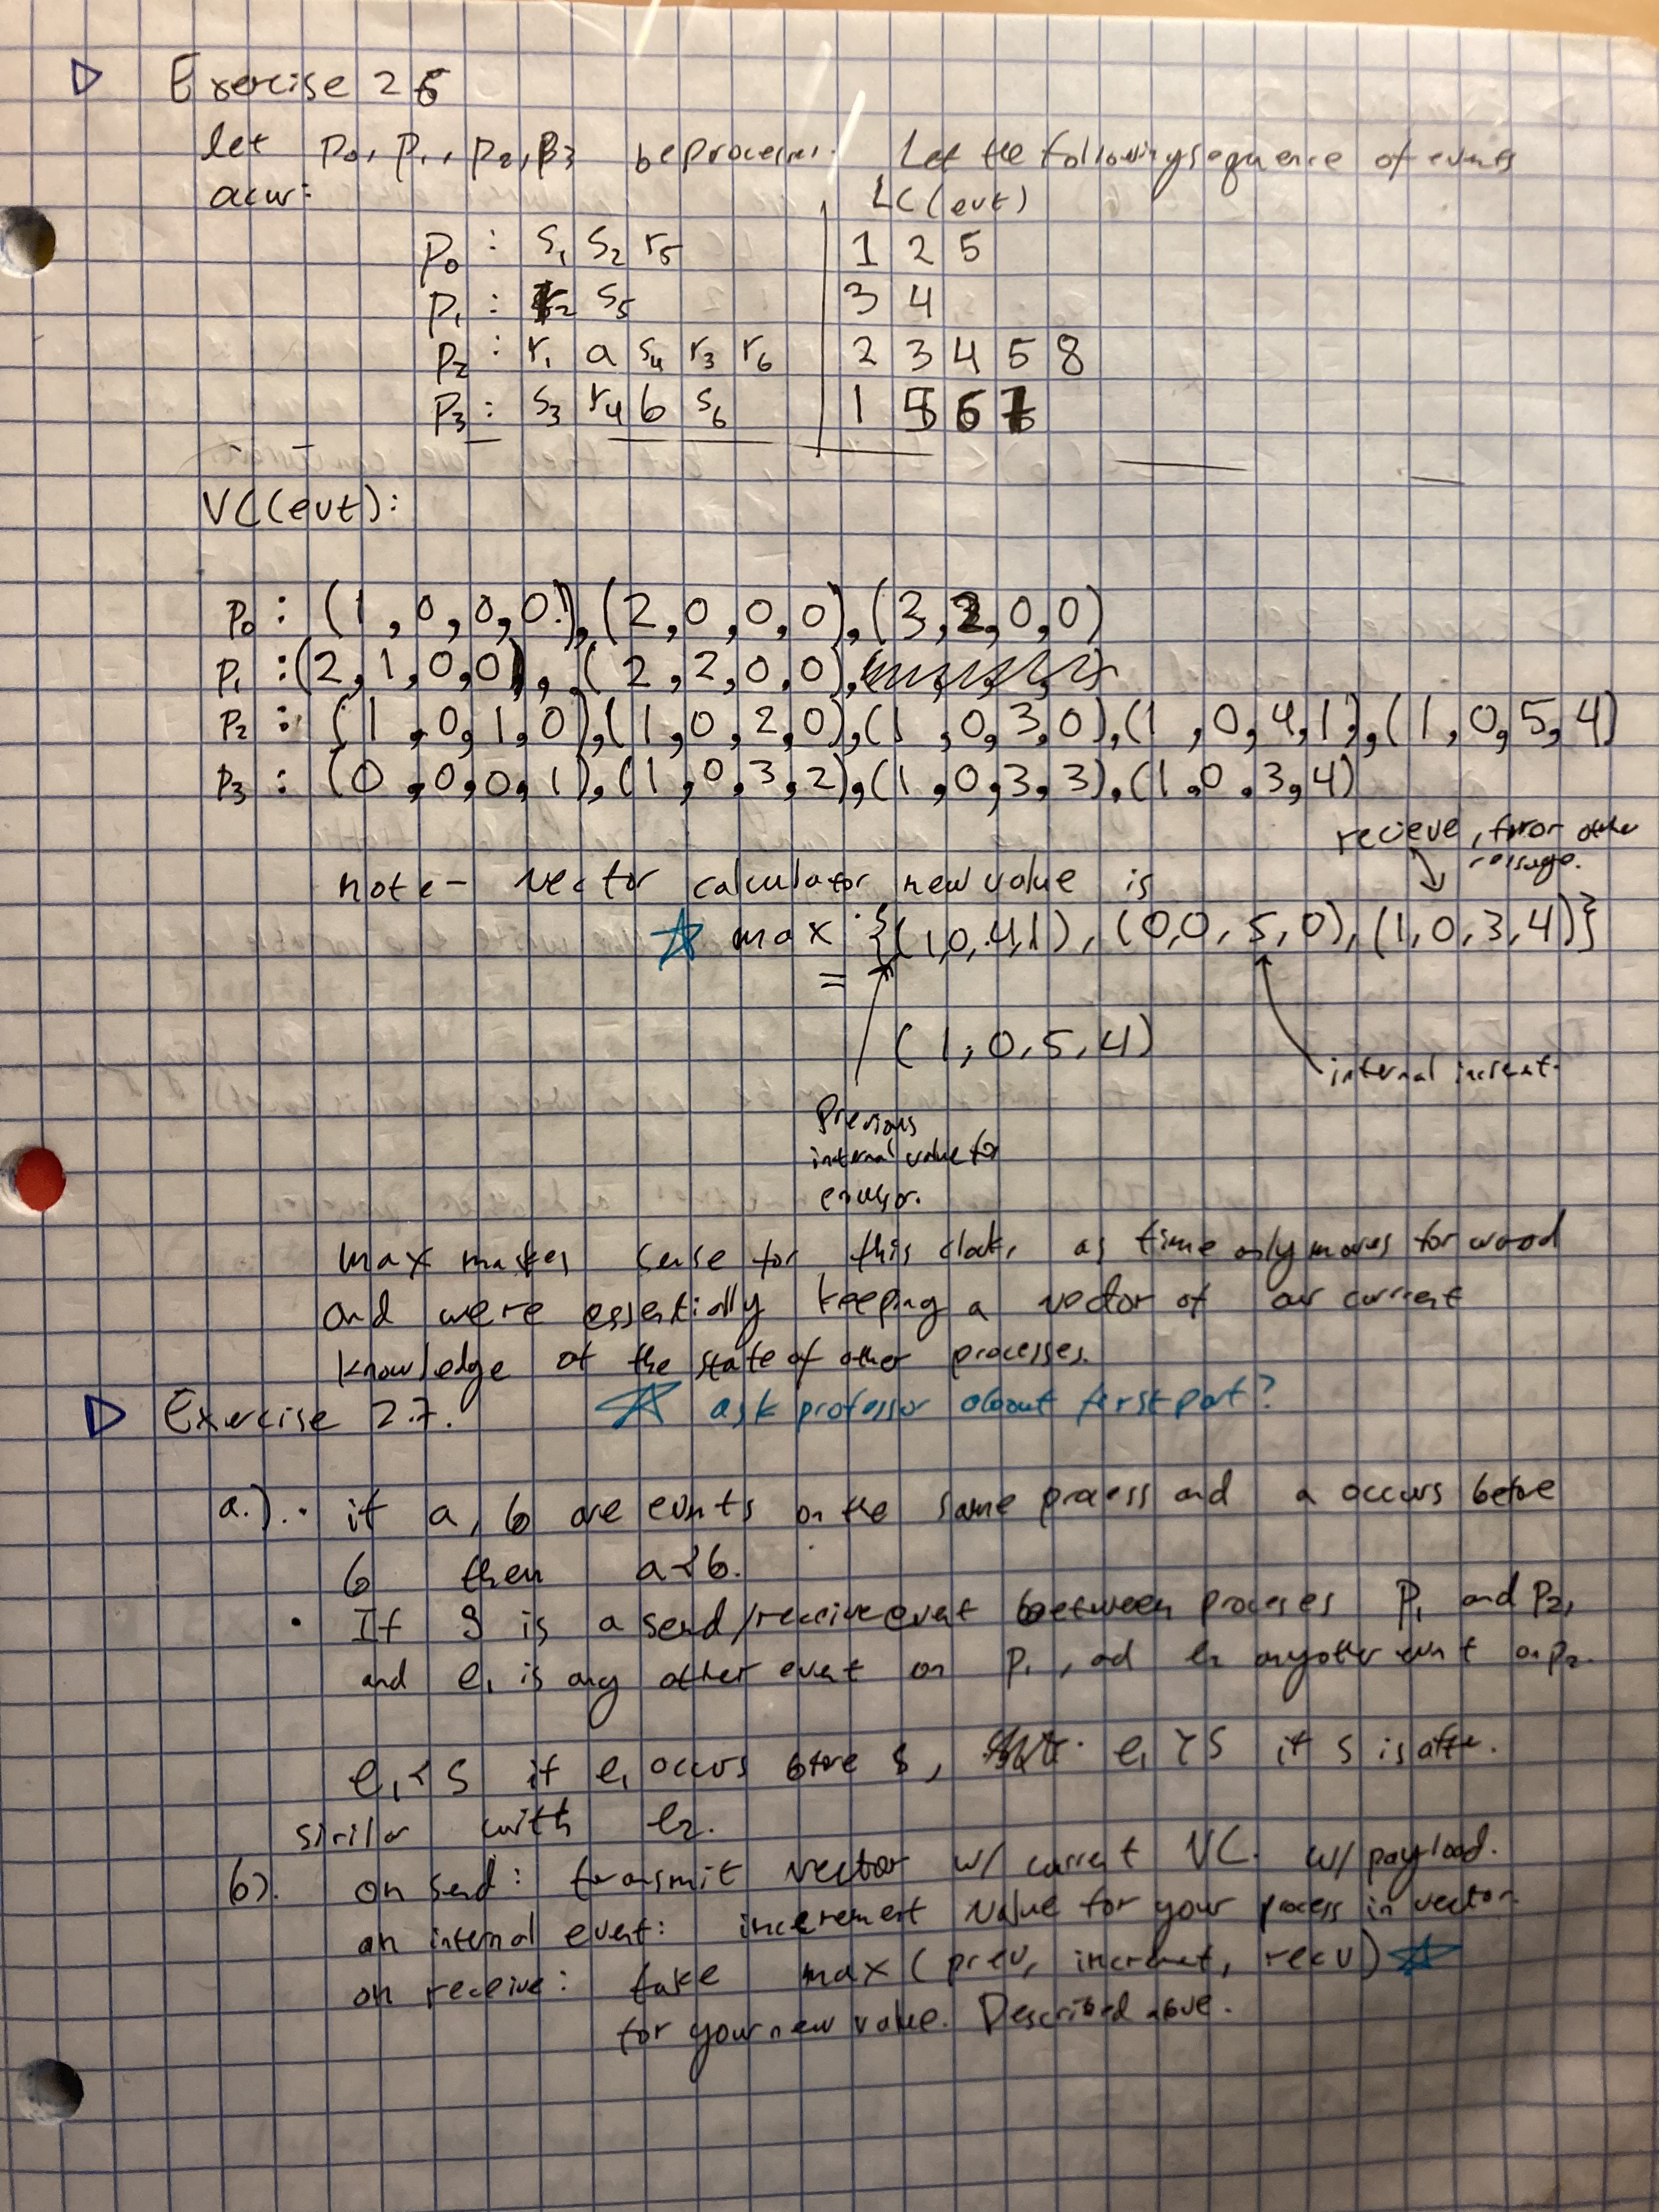 Exercise 2 6
let p₀, p₁, p₂, p₃ be processes. Let the following sequence of events
occur:
LC(evt)
p₀ : s₁ s₂ r₅ | 1 2 5
p₁ : r₂ s₅ | 3 4
p₂ : r₁ a s₄ r₃ r₆ | 2 3 4 5 8
p₃ : s₃ r₄ b s₆ | 1 5 6 7
VC(evt):
p₀ : (1,0,0,0), (2,0,0,0), (3,2,0,0)
p₁ : (2,1,0,0), (2,2,0,0),
p₂ : (1,0,1,0), (1,0,2,0), (1,0,3,0), (1,0,4,1), (1,0,5,4)
p₃ : (0,0,0,1), (1,0,3,2), (1,0,3,3), (1,0,3,4)
recieve, from other
message.
note - vector calculator new value is
☆ max {(1,0,4,1), (0,0,5,0), (1,0,3,4)}
=
(1,0,5,4)
internal
Previous
internal value for
max makes sense for this clock, as time only moves forward
and were essentially keeping a vector of our current
knowledge of the state of other processes.
Exercise 2.7. ☆ ask professor about first part?
a.). • if a, b are events on the same process and a occurs before
b then a ≺ b.
• If S is a send/receive event between processes P₁ and P₂,
and e₁ is any other event on p₁, ad e₂ any other evnt on p₂.
e₁ ≺ S if e₁ occurs before S, e₁ ≻ S if S is after.
similar with e₂.
b). on send: transmit vector w/ current VC. w/ payload.
on internal event: increment value for your process in vector.
on receive: take max (prev, increment, recv) ☆
for your new value. Described above.